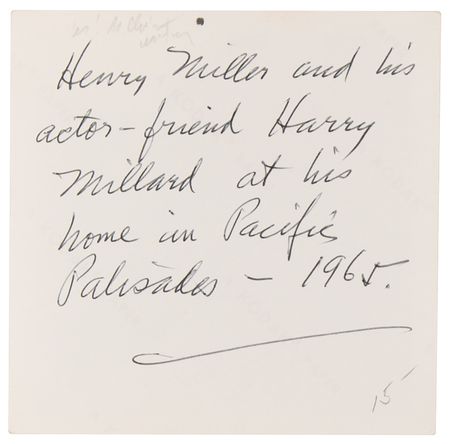 Henry Miller and his
actor-friend Harry
Millard at his
home in Pacific
Palisades – 1965.
15